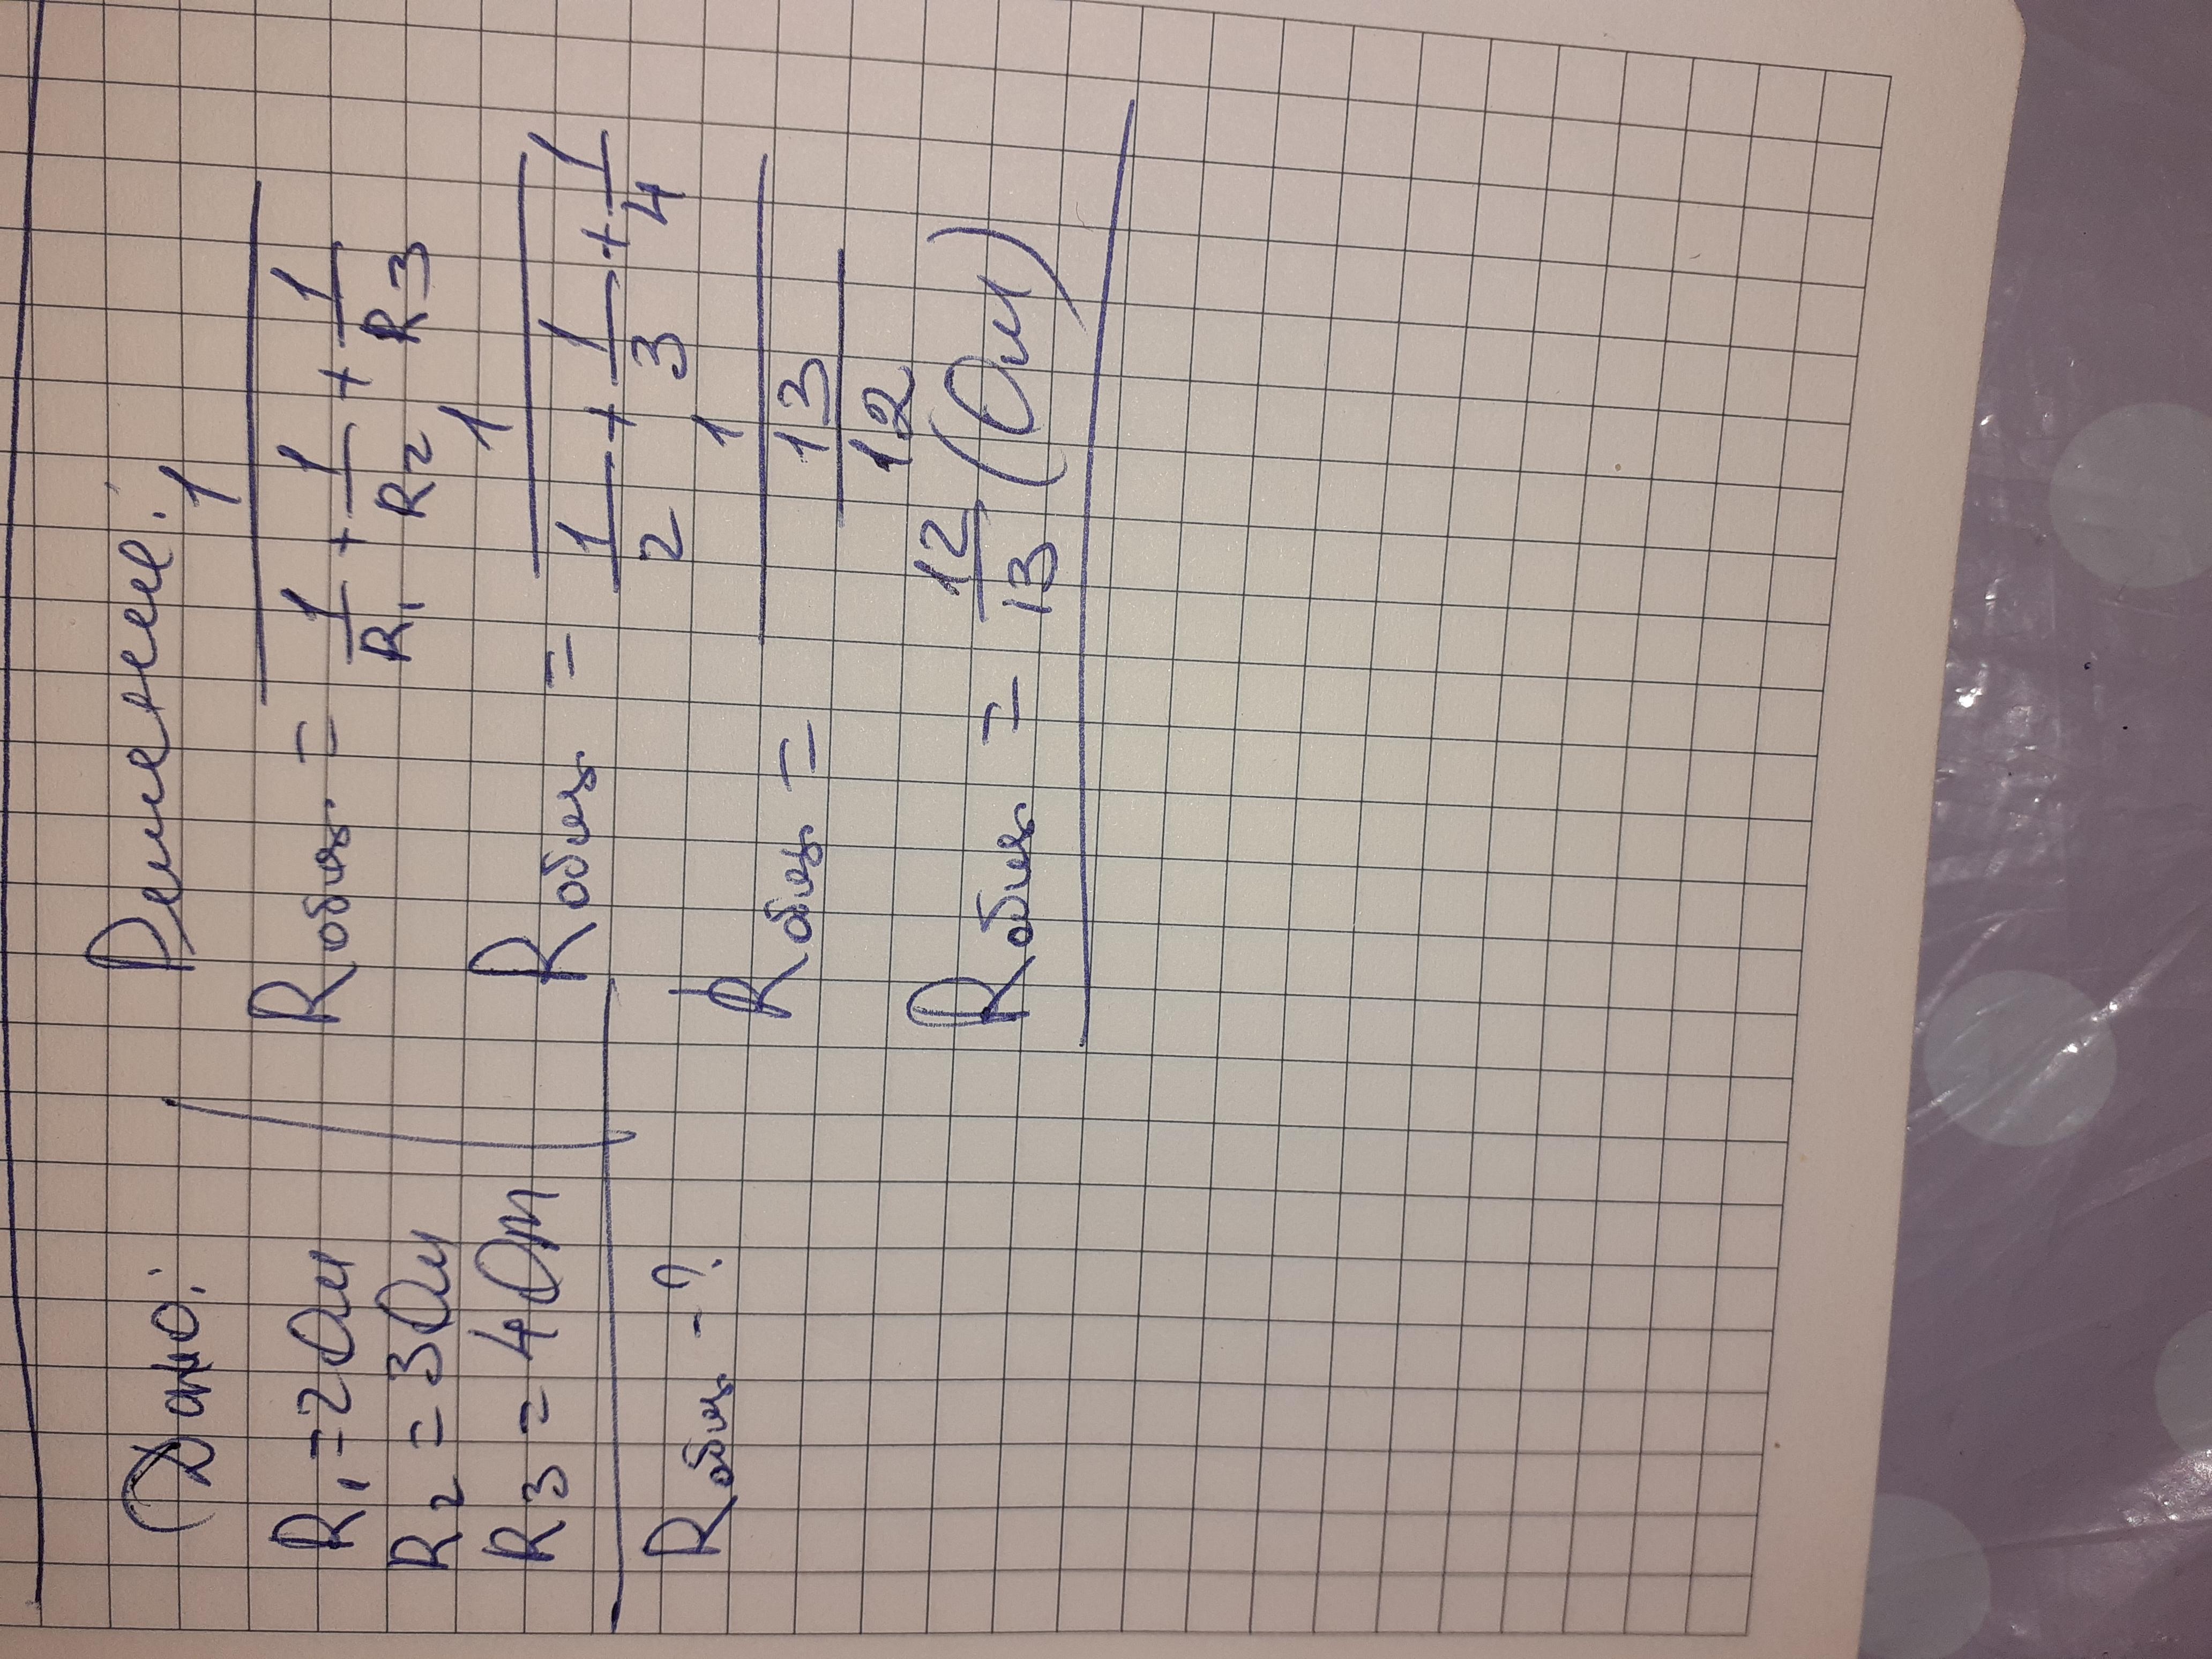 Дано:
R₁ = 2 Ом
R₂ = 3 Ом
R₃ = 4 Ом
Rобщ. - ?
Решение:
Rобщ. = 1 / (1/R₁ + 1/R₂ + 1/R₃)
Rобщ. = 1 / (1/2 + 1/3 + 1/4)
Rобщ. = 1 / (13/12)
Rобщ. = 12/13 (Ом)